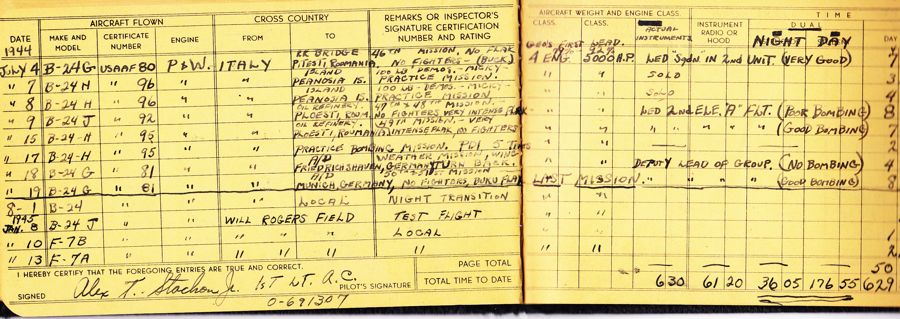 AIRCRAFT FLOWN CROSS COUNTRY REMARKS OR INSPECTOR'S SIGNATURE CERTIFICATION NUMBER AND RATING AIRCRAFT WEIGHT AND ENGINE CLASS. TIME
DATE MAKE AND MODEL CERTIFICATE NUMBER ENGINE FROM TO CLASS. CLASS. ACTUAL INSTRUMENTS INSTRUMENT RADIO OR HOOD DUAL NIGHT DAY DAY
1944 RR BRIDGE 46TH MISSION, NO FLAK GEO'S FIRST LEAD.
JULY 4 B-24G USAAF 80 P&W. ITALY PITESTI, ROUMANIA NO FIGHTERS - (BUCK) 4 ENG. 5000 H.P. LED "SQDN." IN 2ND UNIT. (VERY GOOD) 7
" 7 B-24 H " 96 " " PEANOSIA ISLAND 100 LB DEMOS. - MICKY - PRACTICE MISSION. " " SOLO 3
" 8 B-24 H " 96 " " PEANOSIA IS. ISLAND 100 LB - DEMOS. - MICKY - PRACTICE MISSION " " SOLO 4
" 9 B-24 J " 92 " " OIL REFINERY. PLOESTI, ROUM. 47TH & 48TH MISSION. NO FIGHTERS VERY INTENSE FLAK " " LED 2ND ELE. "A" FLT. (POOR BOMBING) 8
" 15 B-24-H " 95 " " OIL REFINERY. PLOESTI, ROUMANIA 49TH MISSION - VERY INTENSE FLAK, NO FIGHTERS " " " " " " (GOOD BOMBING) 7
" 17 B-24-H " 95 " " PRACTICE BOMBING MISSION. 5 TIMES " " 2
" 18 B-24 G " 81 " " A/D FRIEDRICHSHAVEN, GERMANY WEATHER MISSION, WING TURN BACK. " " DEPUTY LEAD OF GROUP. (NO BOMBING) 4
" 19 B-24 G " 81 " " A/D MUNICH, GERMANY, 50TH & 51ST MISSION NO FIGHTERS, BUKU FLAK LAST MISSION. " " " " (GOOD BOMBING) 8
8-1 B-24 " " LOCAL NIGHT TRANSITION " "
1945
JAN. 8 B-24 J " " WILL ROGERS FIELD TEST FLIGHT " "
" 10 F-7B " " " " " LOCAL " " 1
" 13 F-7A " " " " " " " " 2
I HEREBY CERTIFY THAT THE FOREGOING ENTRIES ARE TRUE AND CORRECT. PAGE TOTAL 50
SIGNED Alex T. Stachon Jr. 1ST LT. A.C. PILOT'S SIGNATURE TOTAL TIME TO DATE 6 30 61 20 36 05 176 55 629
O-691307